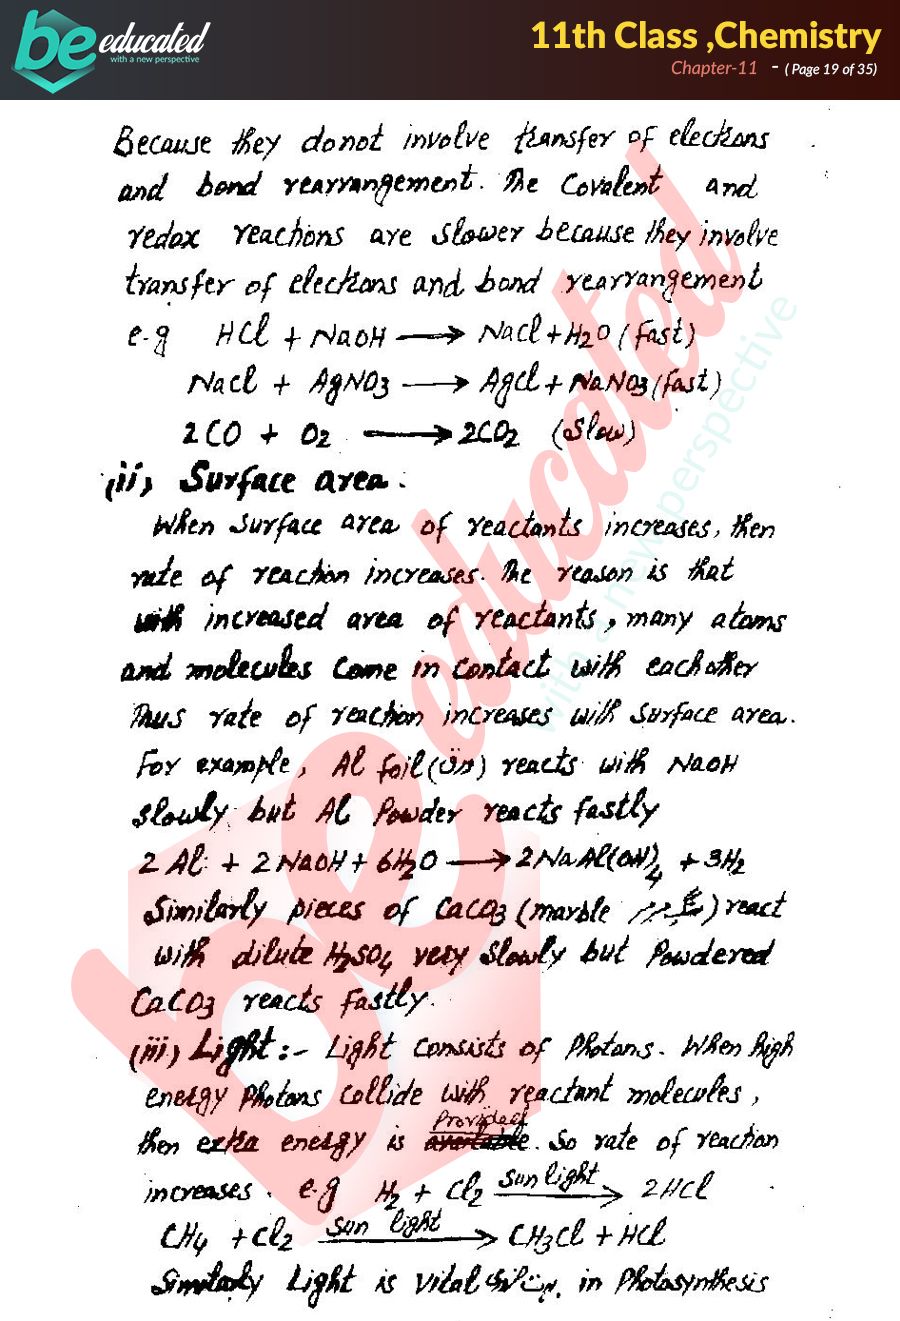 be educated
with a new perspective
11th Class ,Chemistry
Chapter-11 - ( Page 19 of 35)
Because they donot involve transfer of electrons
and bond rearrangement. The Covalent and
redox reactions are slower because they involve
transfer of electrons and bond rearrangement
e.g HCl + NaOH ⟶ NaCl + H2O (fast)
NaCl + AgNO3 ⟶ AgCl + NaNO3 (fast)
2CO + O2 ⟶ 2CO2 (Slow)
(ii) Surface area.
When surface area of reactants increases, then
rate of reaction increases. The reason is that
with increased area of reactants, many atoms
and molecules come in contact with each other
Thus rate of reaction increases with surface area.
For example, Al foil ( ) reacts with NaOH
slowly but Al Powder reacts fastly
2 Al + 2 NaOH + 6H2O ⟶ 2 NaAl(OH)4 + 3H2
Similarly pieces of CaCO3 (marble ) react
with dilute H2SO4 very slowly but Powdered
CaCO3 reacts fastly.
(iii) Light:- Light consists of Photons. When high
energy Photons collide with reactant molecules,
Provided
then extra energy is available. So rate of reaction
increases. e.g H2 + Cl2 sun light ⟶ 2HCl
CH4 + Cl2 sun light ⟶ CH3Cl + HCl
Similarly Light is vital in Photosynthesis
be educated
with a new perspective